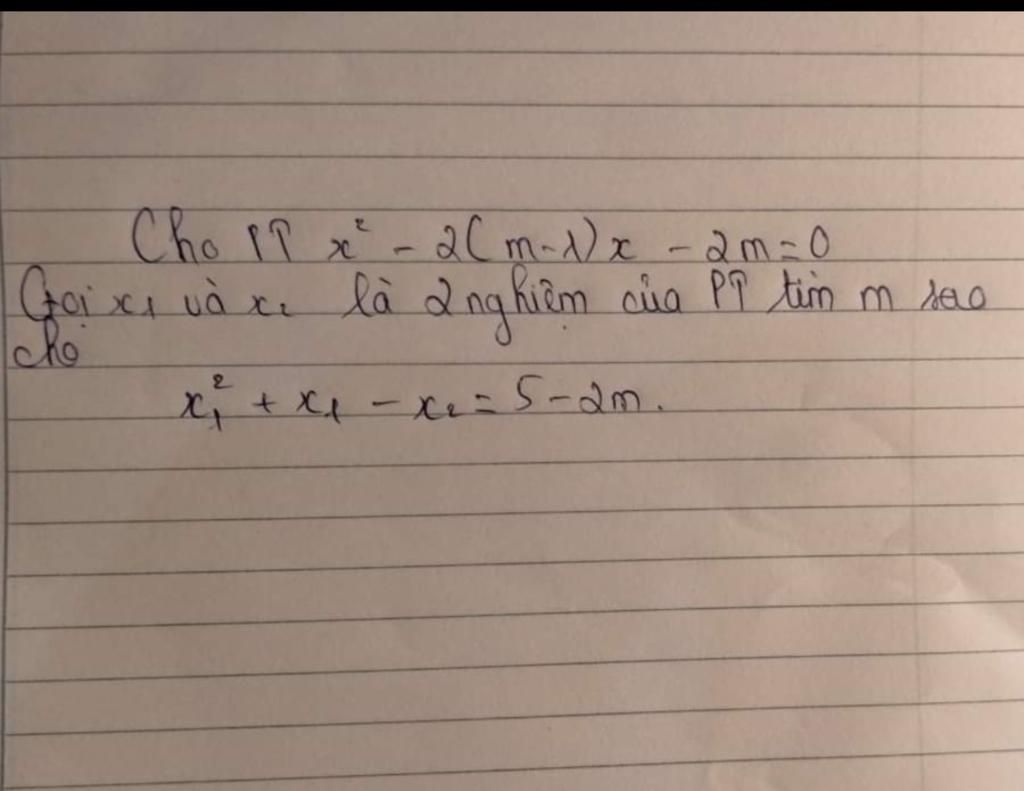 Cho PT x² - 2(m-1)x - 2m=0
Gọi x₁ và x₂ là 2 nghiệm của PT tìm m sao
cho
x₁² + x₁ - x₂ = 5 - 2m.